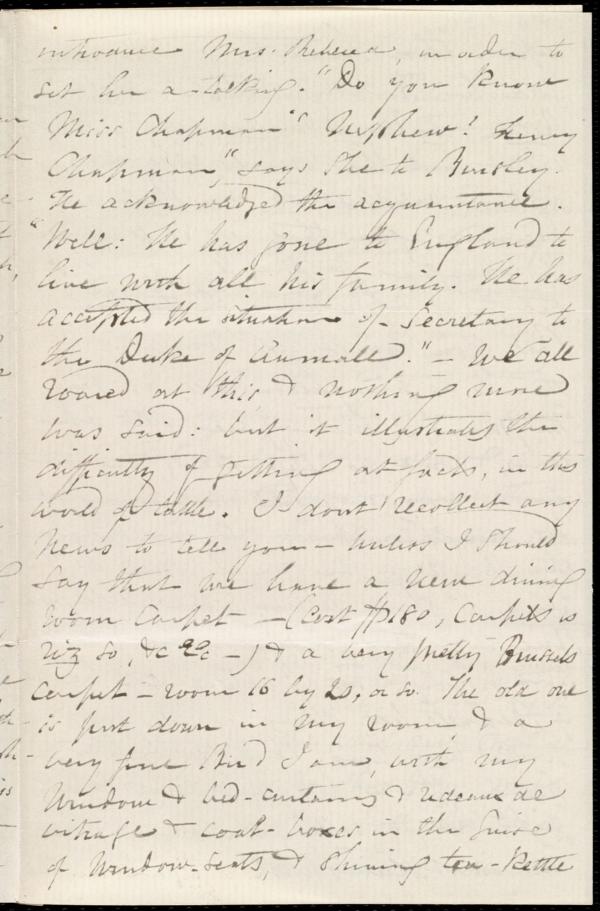 introduce Mrs. Rebecca, in order to
set her a-talking. "Do you know
Miss Chapman's Nephew! Henry
Chapman", says she to Bursley.
He acknowledged the acquaintance.
"Well: He has gone to England to
live with all his family. He has
accepted the situation of Secretary to
the Duke of Aumale." — We all
roared at this & nothing more
was said: but it illustrates the
difficulty of getting at facts, in this
world of tattle. I dont recollect any
news to tell you — unless I should
say that we have a new dining
room carpet — (cost $180, Carpets is
riz so, &c &c —) & a very pretty Brussels
carpet — room 16 by 20, or so. The old one
is put down in my room, & a
very fine Bird I am, with my
Window & bed-curtains & rideaux de
vitrage & coal-boxes in the guise
of Window-seats, & shining tea-kettle